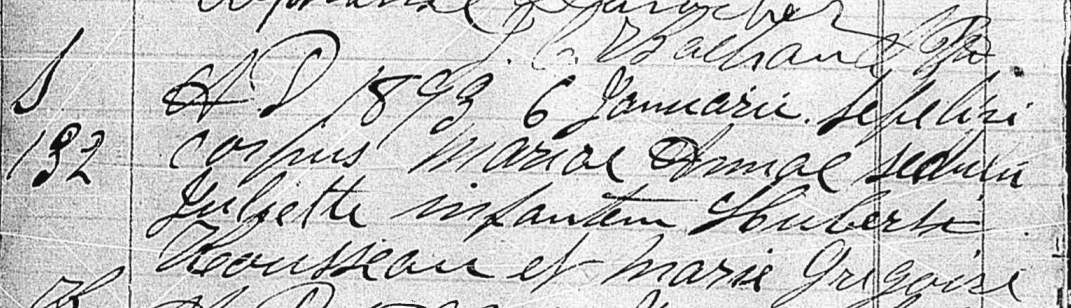 J. C. Bachand Ptr
S
A D 1893 6 Januarii sepelivi
132
corpus Mariae Annae
Juliette infantem Huberti
Rousseau et Marie Grégoire